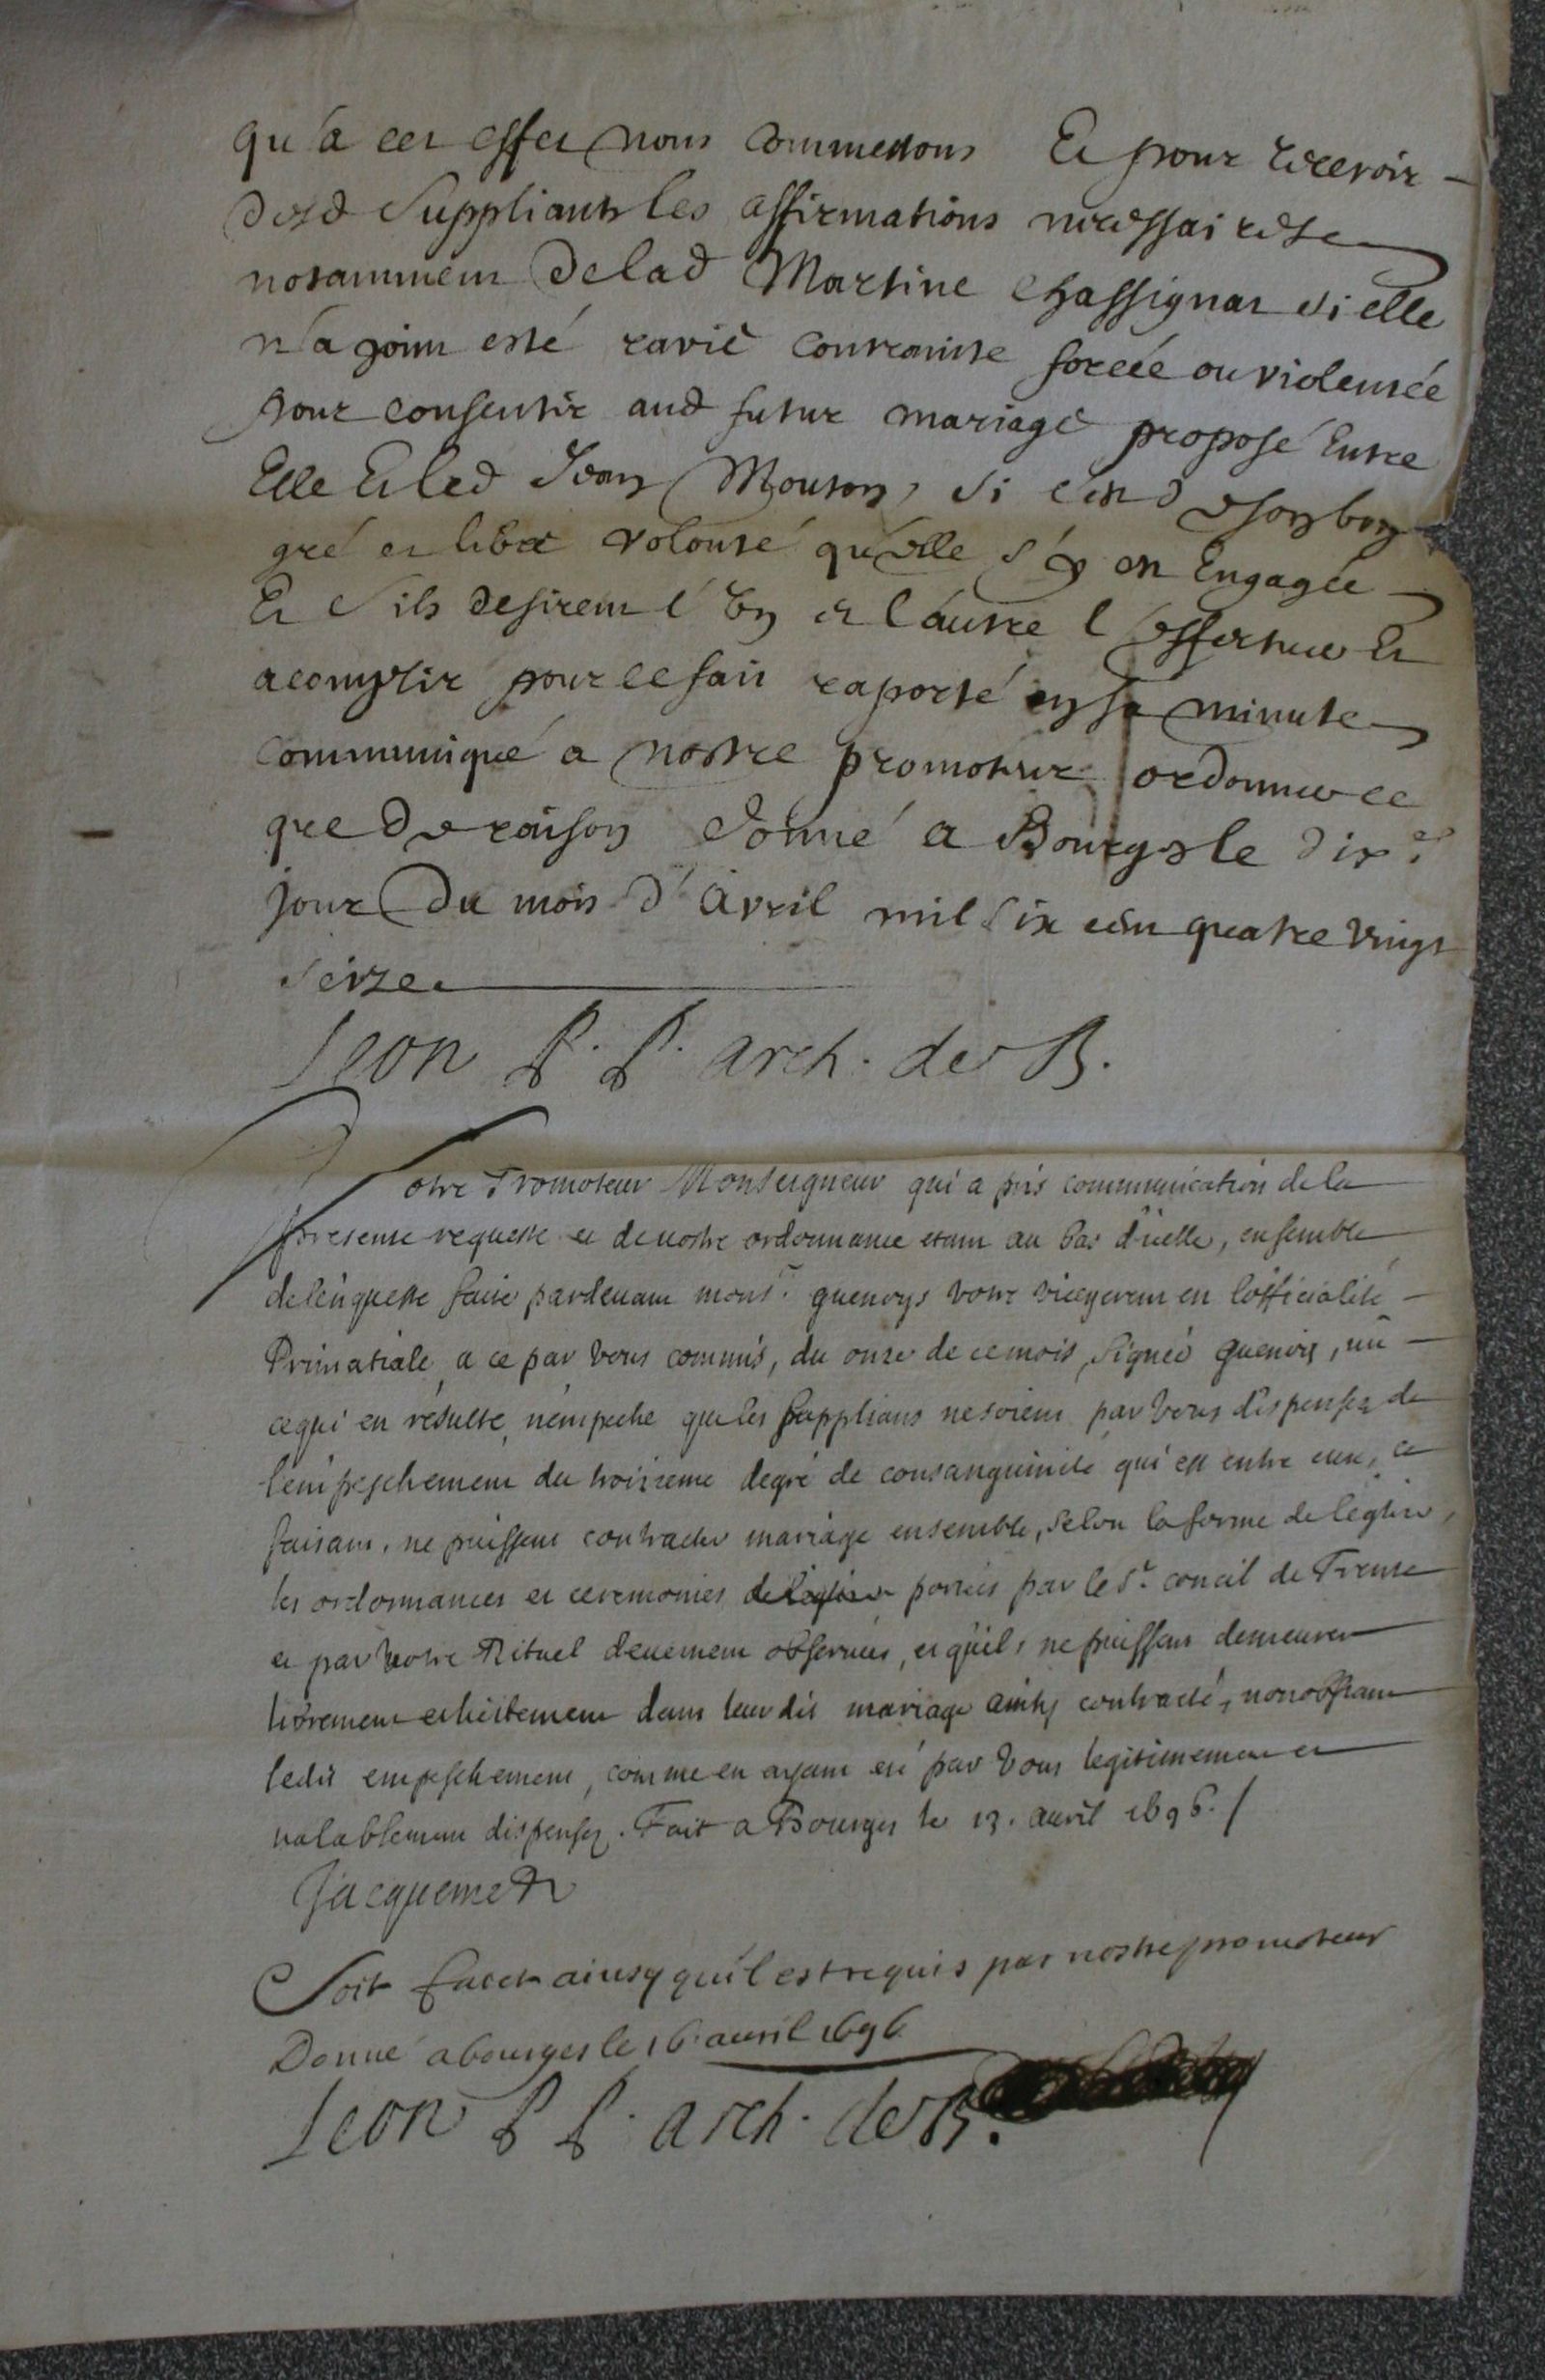 qu'a cet effet nous commettons Et pour recevoir
desd suppliants les affirmations necessaires
notamment de lad Martine Chassignat si elle
n'a point esté ravie contrainte forcée ou violentée
pour consentir aud futur mariage proposé Entre
Elle Et led Jean Mouton, si c'est de son bon
gré et libre volonté qu'elle s'y est Engagée
Et s'ils desirent l'un et l'autre l'effectuer Et
acomplir pour ce fait raporté en sa minute
communiqué a nostre promoteur ordonner ce
que de raison donné a Bourges le dix e
jour du mois d'avril mil six cent quatre vingt
seize
Leon P. P. arch. de B.
Votre Promoteur Monseigneur qui a pris communication de la
presente requeste et de vostre ordonnance etant au bas d'icelle, ensemble
de l'enqueste faite pardevant monsr. guenoys votre vicegerent en l'officialité
Primatiale, a ce par vous commis, du onze de ce mois, signée guenoys, vû
ce qui en resulte, n'empeche que les supplians ne soient par vous dispensez de
l'empeschement du troisieme degré de consanguinité qui est entre eux, ce
faisant, ne puissent contracter mariage ensemble, selon la forme de l'eglise,
les ordonnances et ceremonies de l'eglise portées par le St. concil de Trente
et par votre Rituel deuement observées, et qu'ils ne puissent demeurer
librement et licitement dans leur dit mariage ainsy contracté, nonobstant
ledit empeschement, comme en ayant eté par vous legitimement et
valablement dispensez. Fait a Bourges le 13. avril 1696. /
Jacquemet
Soit faict ainsy qu'il est requis par nostre promoteur
Donné a bourges le 16 avril 1696
Leon P P. arch. de B.